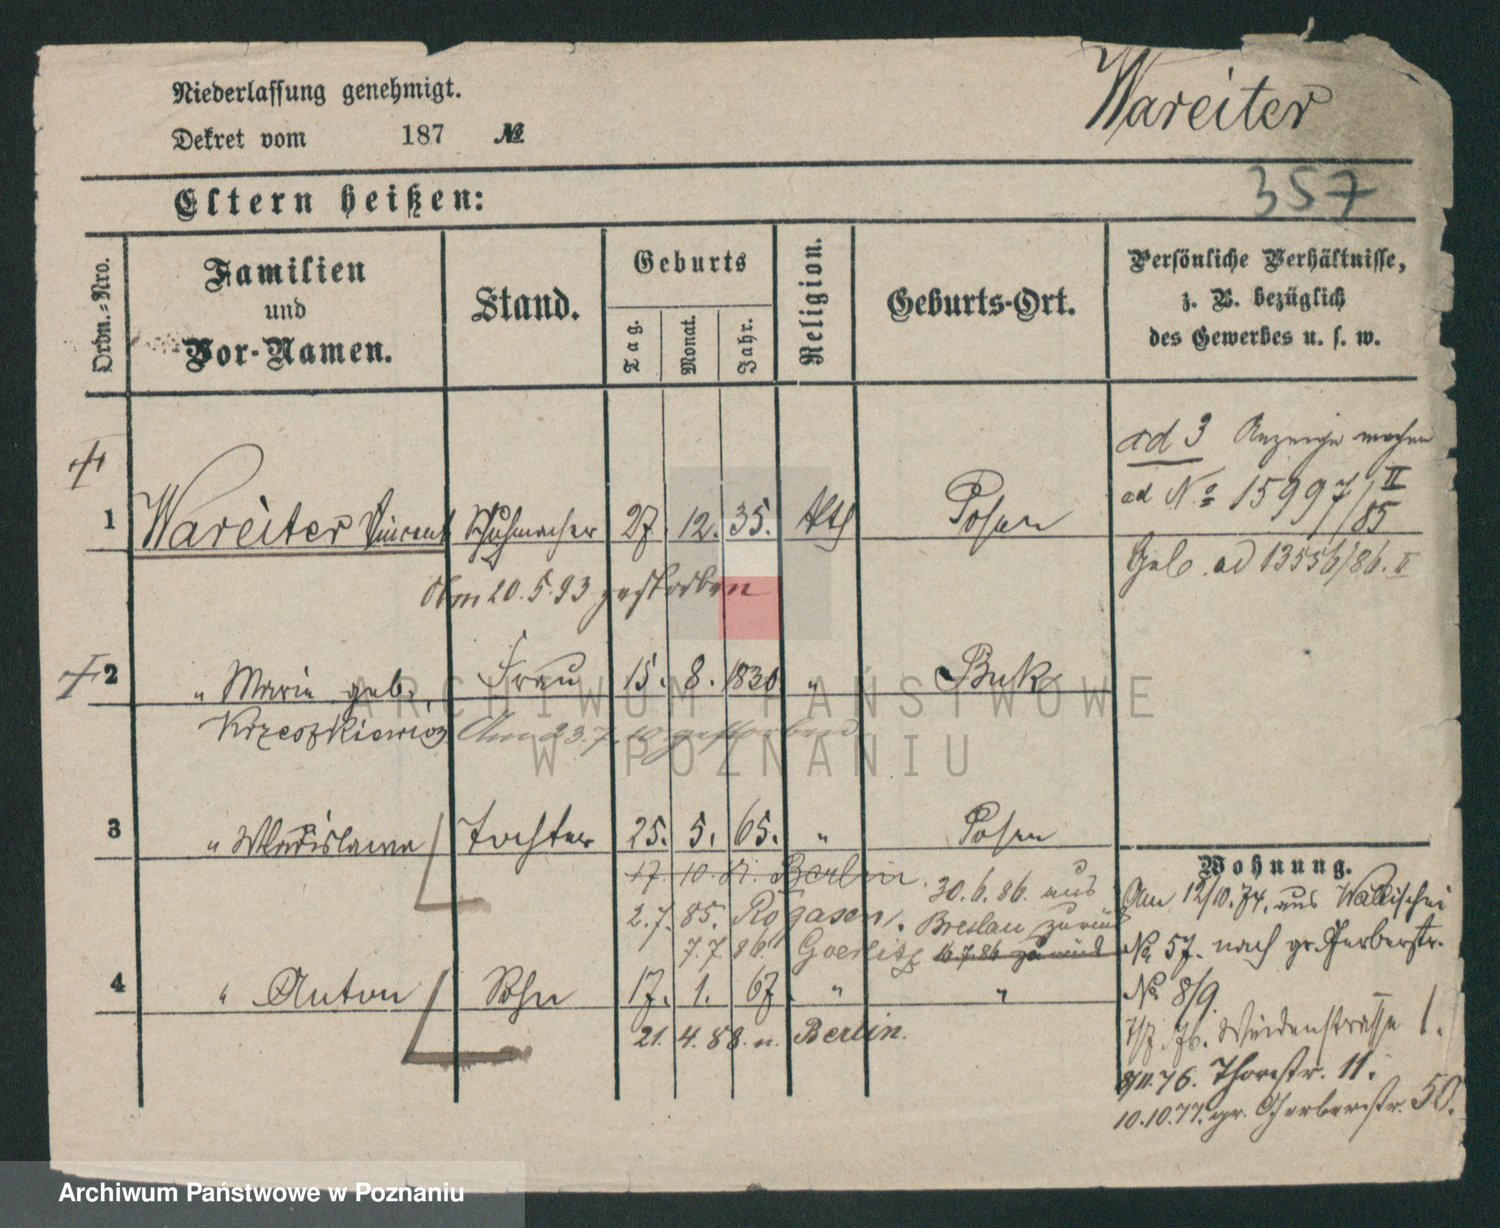 Niederlassung genehmigt.
Dekret vom 187 №
Wareiter
357
Eltern heißen:
Ordn.-Nro.
Familien
und
Vor-Namen.
Stand.
Geburts
Tag.
Monat.
Jahr.
Religion.
Geburts-Ort.
Persönliche Verhältnisse,
z. B. bezüglich
des Gewerbes u. s. w.
ad 3 Anzeige machen
ad No 15997/II 85
1 Wareiter Vincent Schuhmacher 27. 12. 35. kth Posen
Geb. ad 13556/86. II
Am 20.5.93 gestorben
2 " Marie geb. Frau 15. 8. 1830 " Buk
Krzeszkiewicz Am 23.7.10 gestorben
3 " Wladislawa Tochter 25. 5. 65. " Posen
17. 10. Berlin
30.6.86. aus
2.7. 85. Rogasen.
Breslau zurück
7.7.86. Goerlitz
16.7.86 zurück
4 " Anton Sohn 17. 1. 67 " "
21. 4. 88. n. Berlin.
Wohnung.
Am 12/10. 74. aus Wallischei
No 57. nach gr. Gerberstr.
No 8/9.
1/7. 76. Weidenstrasse 1.
8/11.76. Thorstr. 11.
10.10.77. gr. Gerberstr. 50.
ARCHIWUM PAŃSTWOWE
W POZNANIU
Archiwum Państwowe w Poznaniu